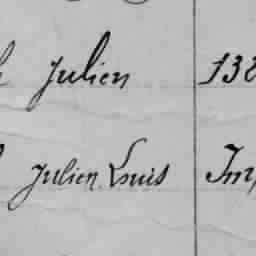 Julien 138
Julien Louis